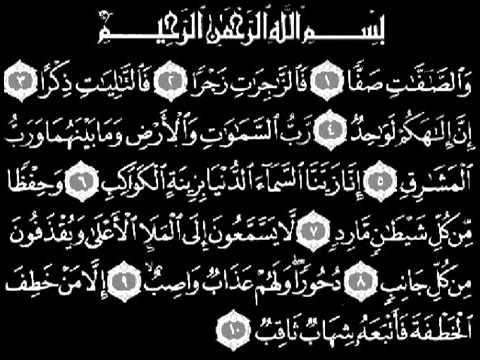 بِسْمِ اللَّهِ الرَّحْمَٰنِ الرَّحِيمِ
وَالصَّافَّاتِ صَفًّا ١ فَالزَّاجِرَاتِ زَجْرًا ٢ فَالتَّالِيَاتِ ذِكْرًا ٣
إِنَّ إِلَٰهَكُمْ لَوَاحِدٌ ٤ رَّبُّ السَّمَاوَاتِ وَالْأَرْضِ وَمَا بَيْنَهُمَا وَرَبُّ
الْمَشَارِقِ ٥ إِنَّا زَيَّنَّا السَّمَاءَ الدُّنْيَا بِزِينَةٍ الْكَوَاكِبِ ٦ وَحِفْظًا
مِّن كُلِّ شَيْطَانٍ مَّارِدٍ ٧ لَّا يَسَّمَّعُونَ إِلَى الْمَلَإِ الْأَعْلَىٰ وَيُقْذَفُونَ
مِن كُلِّ جَانِبٍ ٨ دُحُورًا وَلَهُمْ عَذَابٌ وَاصِبٌ ٩ إِلَّا مَنْ خَطِفَ
الْخَطْفَةَ فَأَتْبَعَهُ شِهَابٌ ثَاقِبٌ ١٠